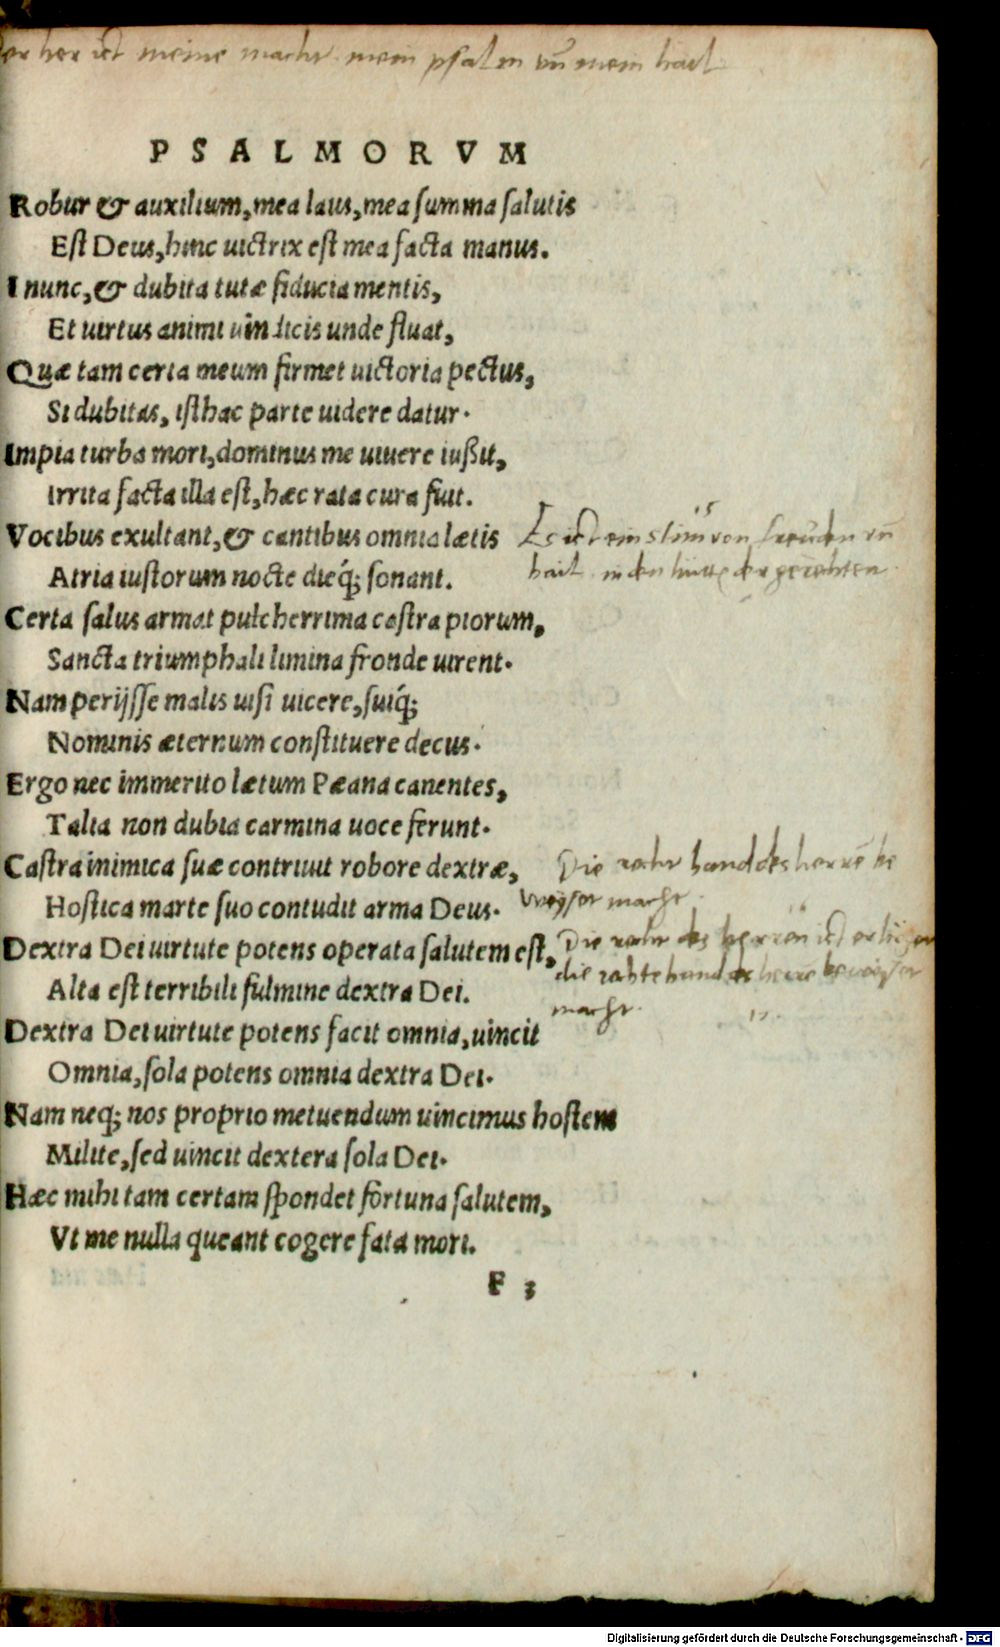 der her ist meine macht mein psalm vñ mein hail
PSALMORVM
Robur & auxilium, mea laus, mea summa salutis
Est Deus, hinc uictrix est mea facta manus.
I nunc, & dubita tutæ fiducia mentis,
Et uirtus animi uindicis unde fluat,
Quæ tam certa meum firmet uictoria pectus,
Si dubitas, isthac parte uidere datur.
Impia turba mori, dominus me uiuere iußit,
Irrita facta illa est, hæc rata cura fuit.
Vocibus exultant, & cantibus omnia lætis
Es ist ein stim von freuden vñ
Atria iustorum nocte dieq́; sonant.
hail in den hütt der gerehten
Certa salus armat pulcherrima castra piorum,
Sancta triumphali limina fronde uirent.
Nam perijsse malis uisi uicere, suiq́;
Nominis æternum constituere decus.
Ergo nec immerito lætum Pæana canentes,
Talia non dubia carmina uoce ferunt.
Castra inimica suæ contriuit robore dextræ,
Die rechte hand des herrē be
Hostica marte suo contudit arma Deus.
weyset macht
Dextra Dei uirtute potens operata salutem est,
Die rechte des herren ist
Alta est terribili fulmine dextra Dei.
die rahte hand des herrē beweyset
macht.
Dextra Dei uirtute potens facit omnia, uincit
Omnia, sola potens omnia dextra Dei.
Nam neq; nos proprio metuendum uincimus hostem
Milite, sed uincit dextera sola Dei.
Hæc mihi tam certam spondet fortuna salutem,
Vt me nulla queant cogere fata mori.
F 3
Digitalisierung gefördert durch die Deutsche Forschungsgemeinschaft - DFG